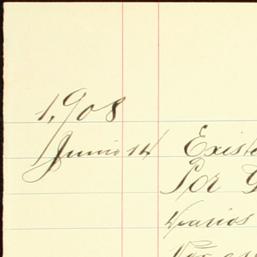 1,908
Junio 14 Existe
Por G
Varios
Por es